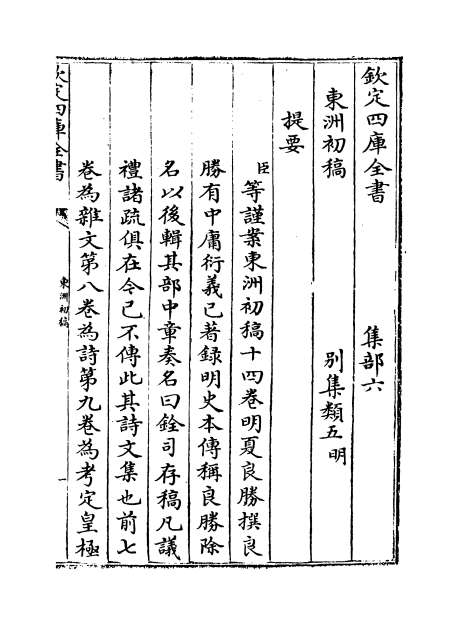 欽定四庫全書　集部六
東洲初稿　別集類五明
提要
臣等謹案東洲初稿十四卷明夏良勝撰良
勝有中庸衍義已著録明史本傳稱良勝除
名以後輯其部中章奏名曰銓司存稿凡議
禮諸疏俱在今已不傳此其詩文集也前七
卷為雜文第八卷為詩第九卷為考定皇極
欽定四庫全書
東洲初稿
一